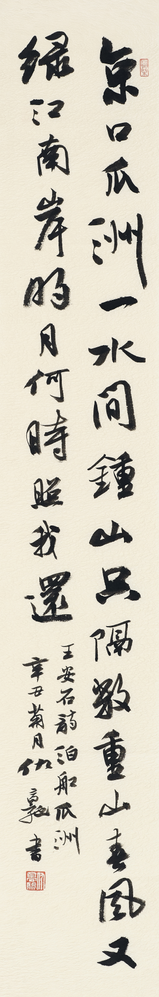 京口瓜洲一水间鍾山只隔数重山春风又
绿江南岸明月何時照我還
王安石詩泊船瓜洲
辛丑菊月仙毅书